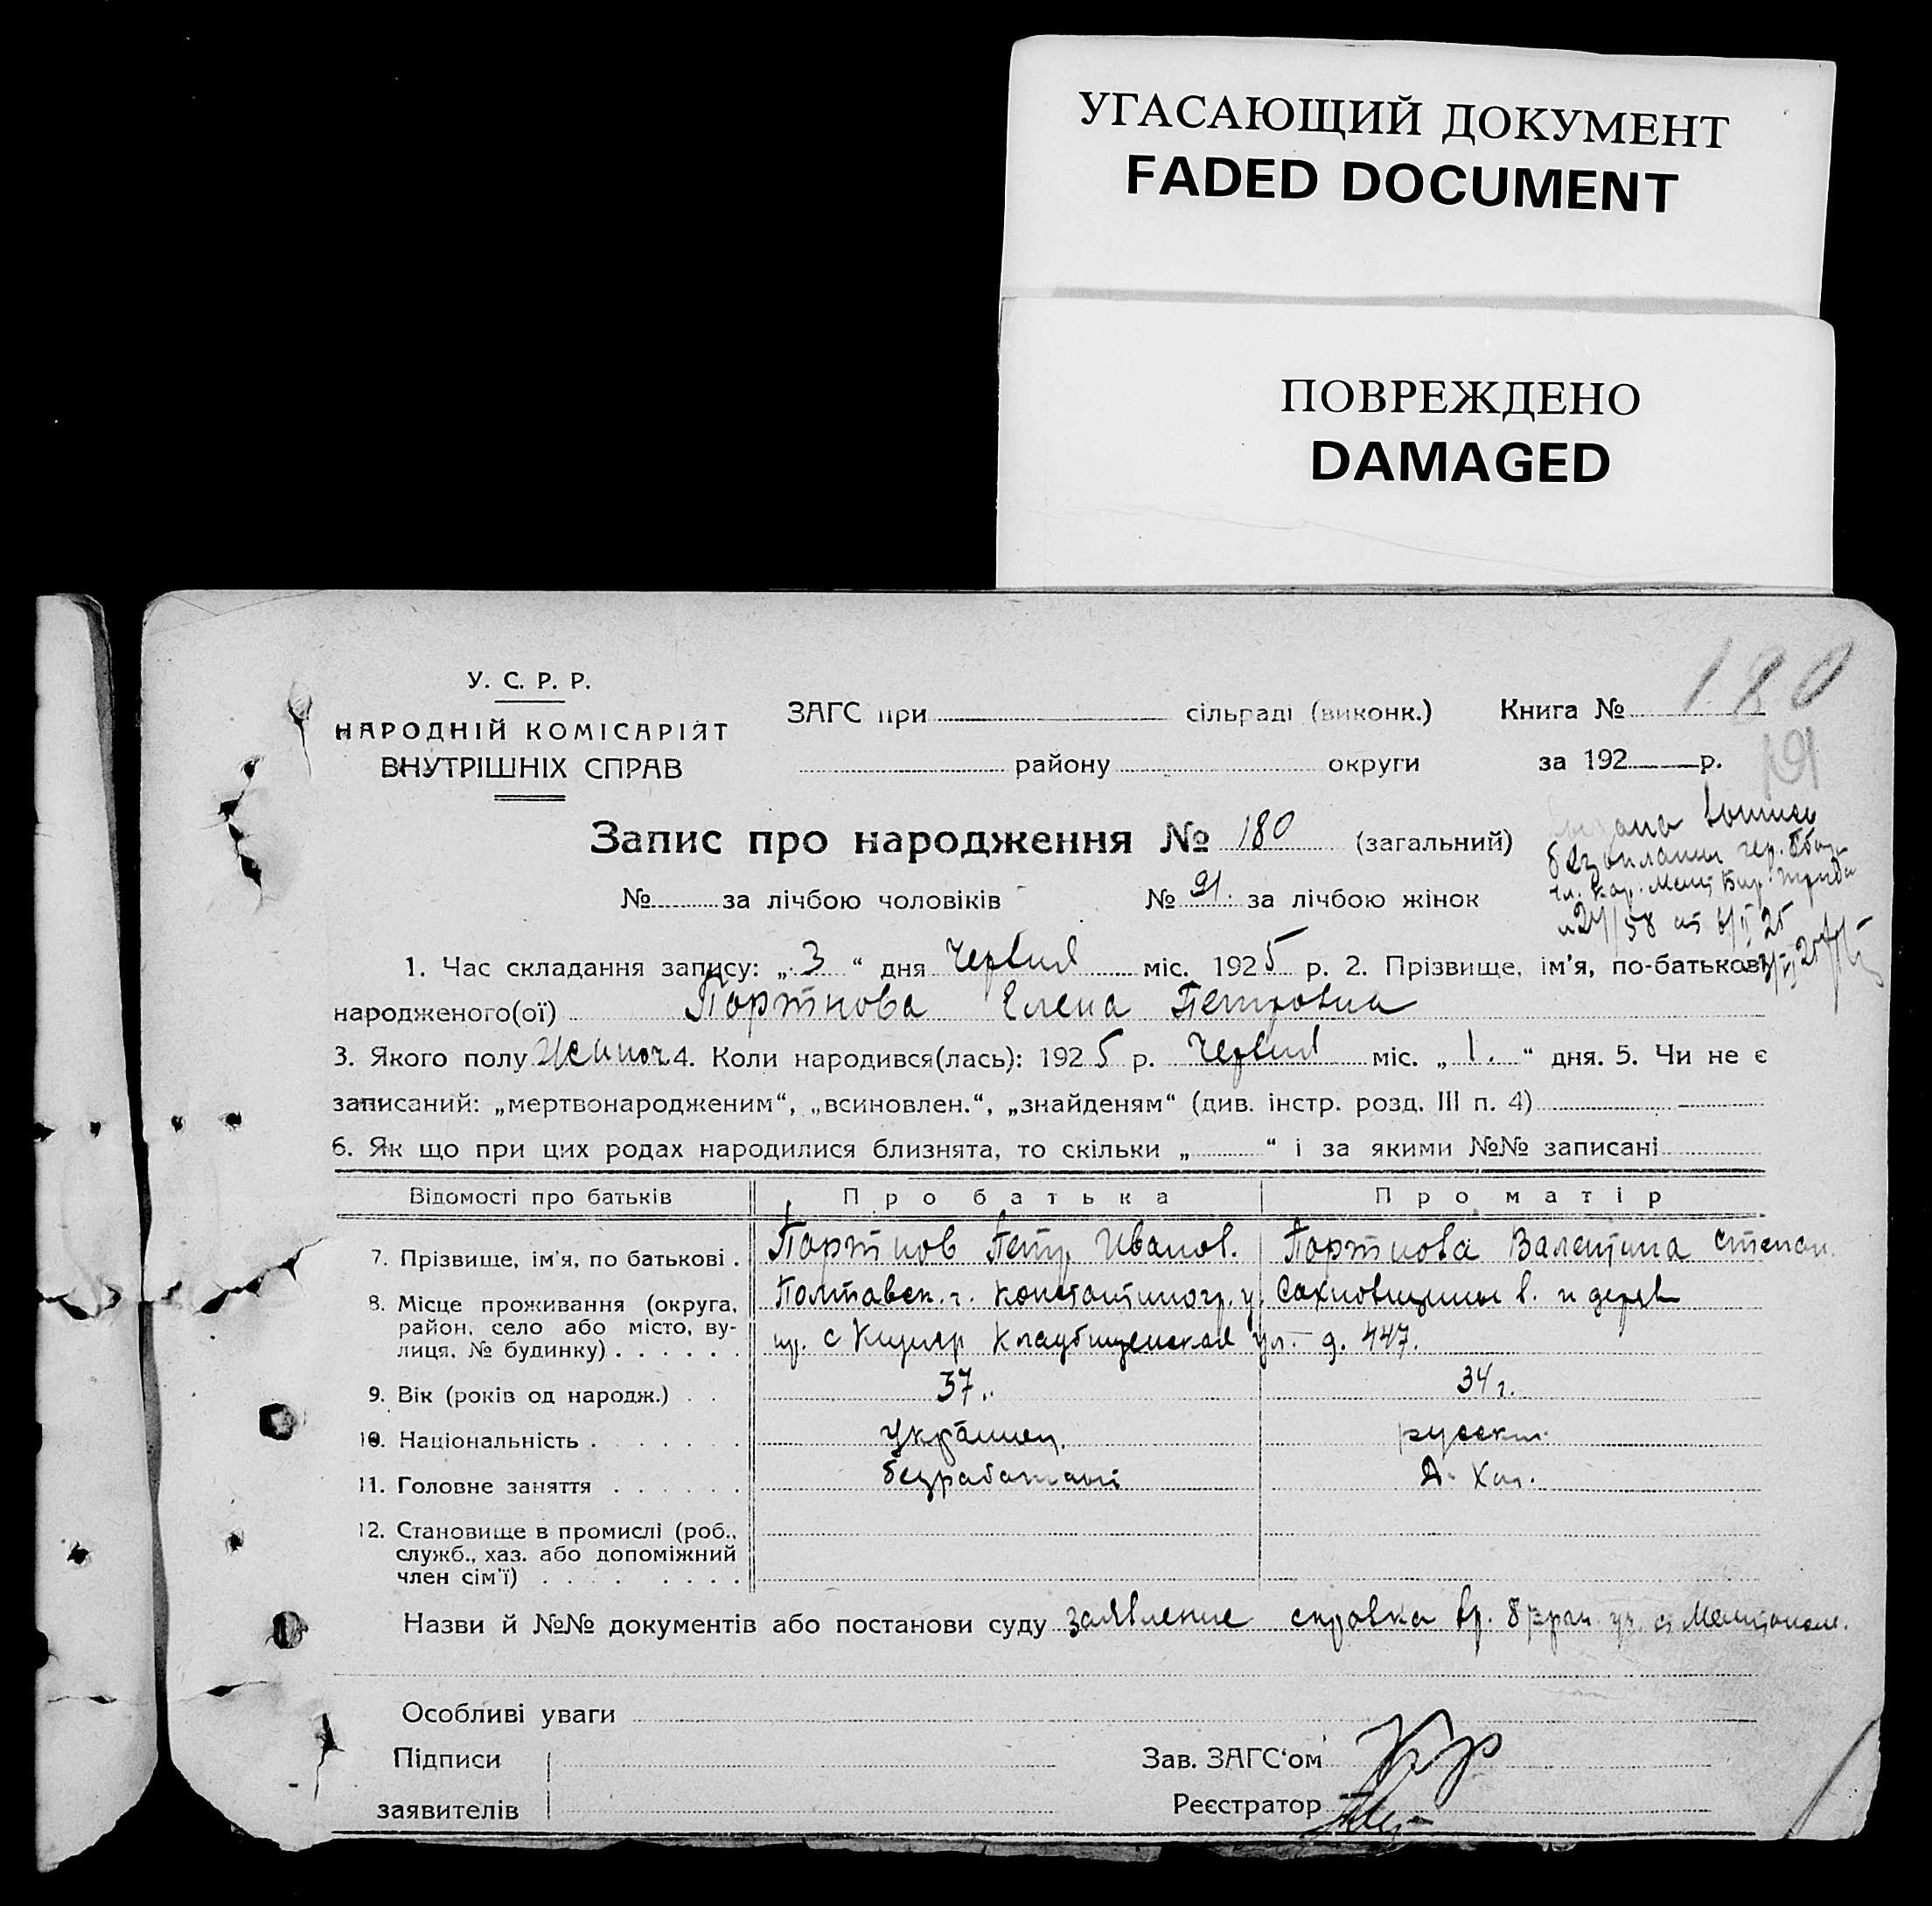 УГАСАЮЩИЙ ДОКУМЕНТ
FADED DOCUMENT
ПОВРЕЖДЕНО
DAMAGED
180
У. С. Р. Р.
НАРОДНІЙ КОМІСАРІЯТ
ВНУТРІШНІХ СПРАВ
ЗАГС при сільраді (виконк.) Книга №
району округи за 192 р.
191
Запис про народження № 180 (загальний)
№ за лічбою чоловіків № 91. за лічбою жінок
1. Час складання запису: „ 3 “ дня Червня міс. 1925 р. 2. Прізвище, ім'я, по-батькові
народженого(ої) Портнова Елена Петровна
3. Якого полу жіноч 4. Коли народився(лась): 1925 р. Червня міс. „ 1. “ дня. 5. Чи не є
записаний: „мертвонародженим“, „всиновлен.“, „знайденям“ (див. інстр. розд. III п. 4)
6. Як що при цих родах народилися близнята, то скільки „ “ і за якими №№ записані
Відомості про батьків Про батька Про матір
7. Прізвище, ім'я, по батькові . Портнов Петр Иванов. Портнова Валентина Степан.
8. Місце проживання (округа, район, село або місто, вулиця, № будинку) Полтавск. г. Константиногр. у. Сахновщины в.
ул. д. 447.
9. Вік (років од народж.) 37.. 34 г.
10. Національність украинец. русск.
11. Головне заняття безработный Д. Хоз.
12. Становище в промислі (роб., служб., хаз. або допоміжний член сім'ї)
Назви й №№ документів або постанови суду заявление справка вр. 8
Особливі уваги
Підписи
заявителів
Зав. ЗАГС‘ом
Реєстратор